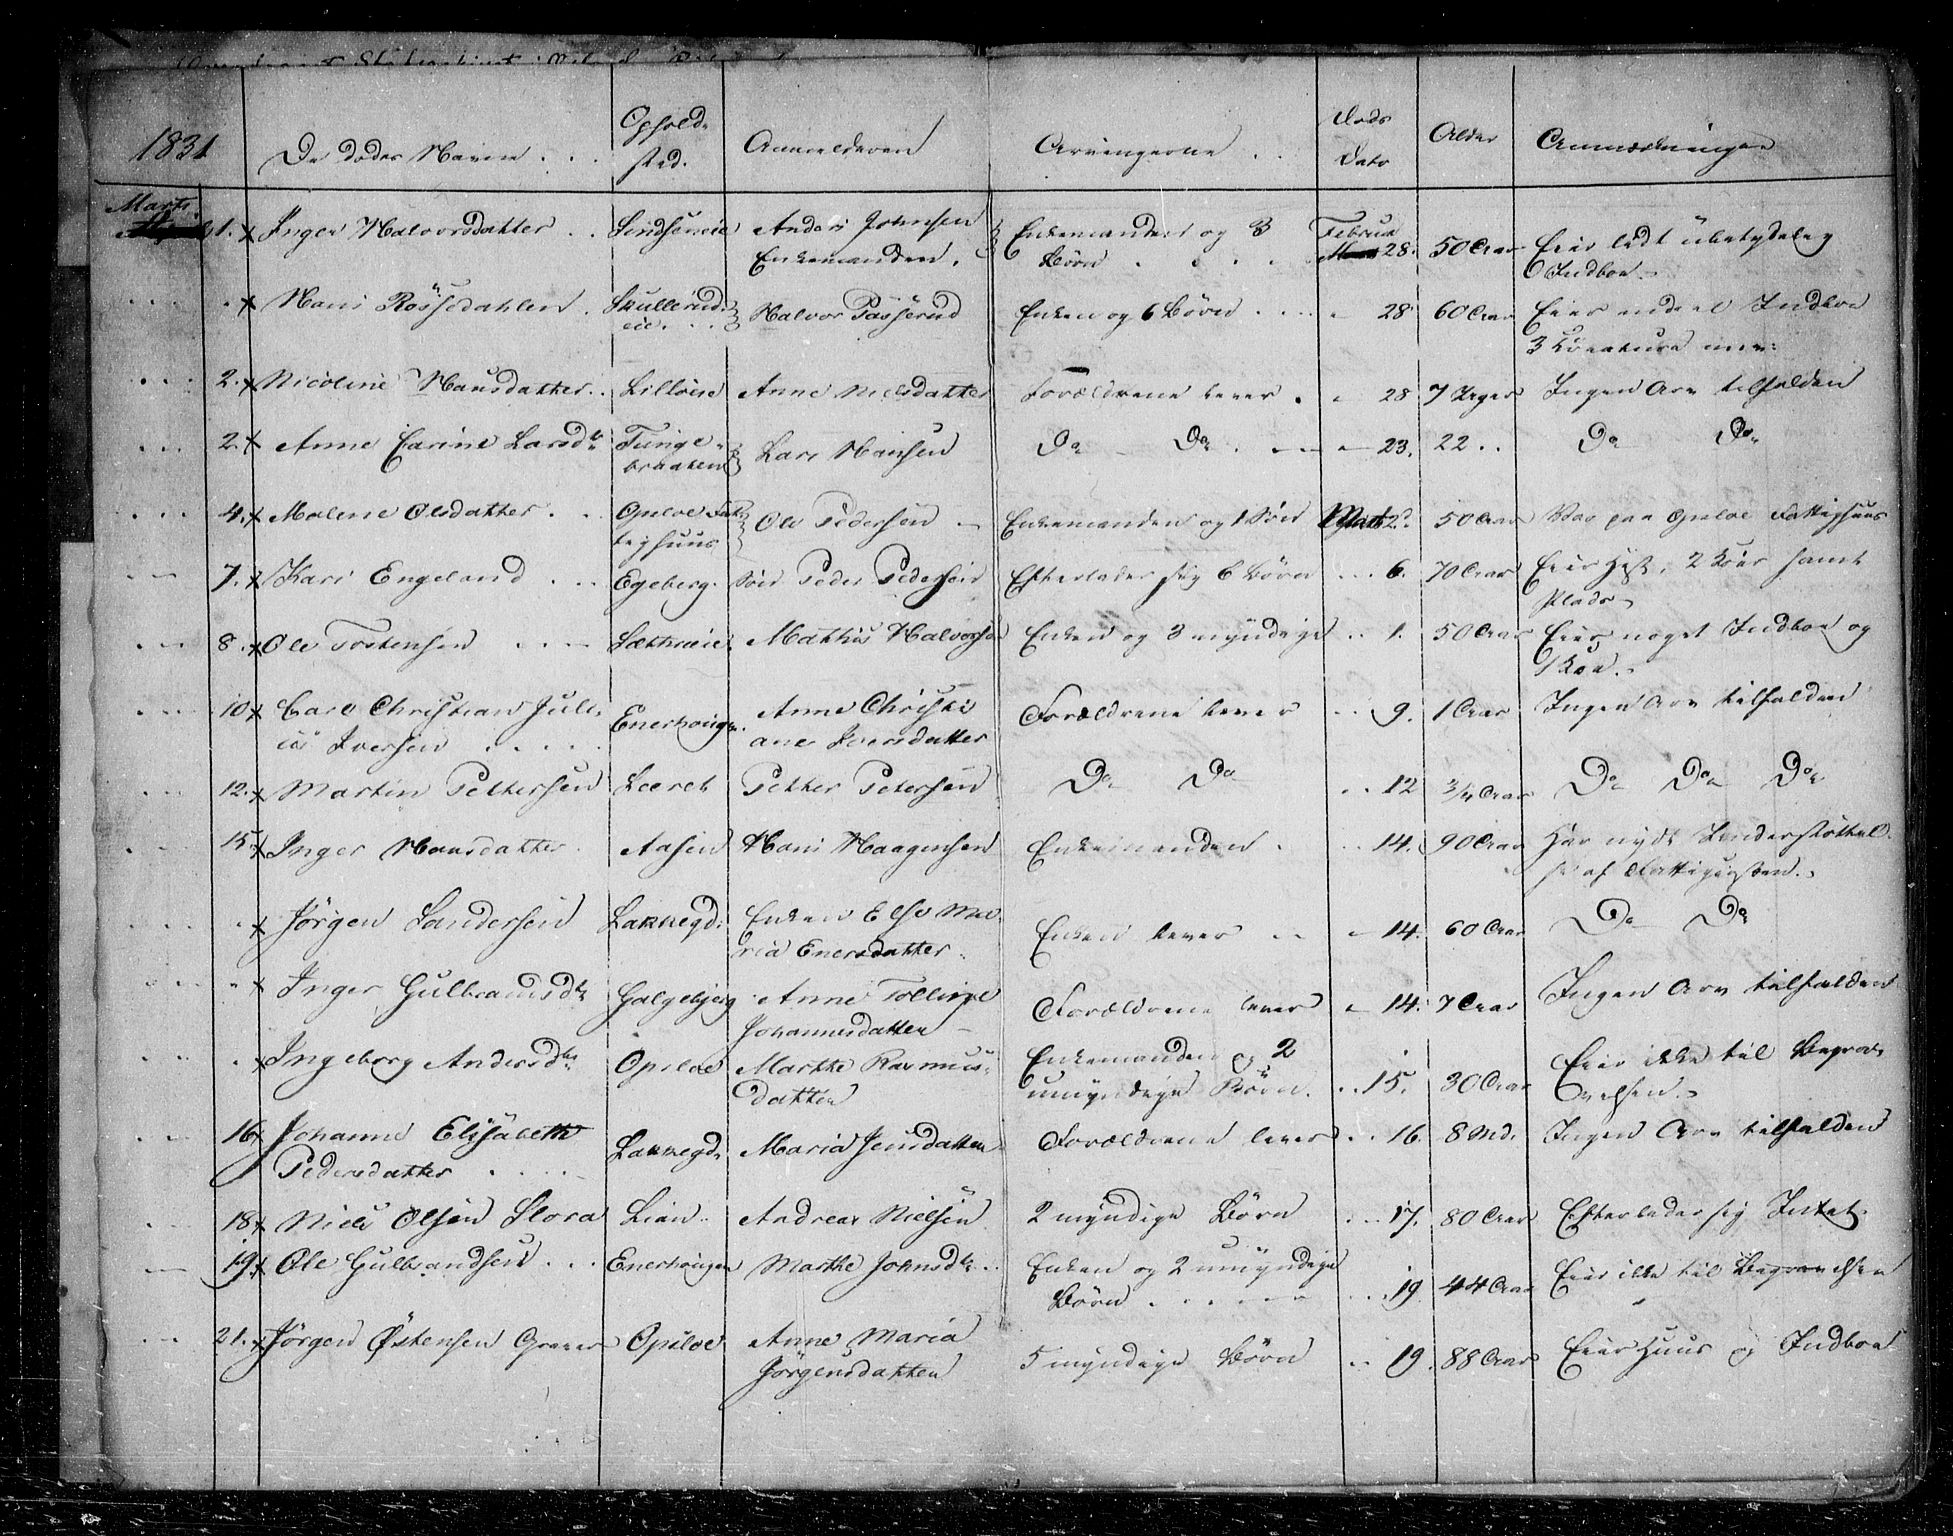 1831 De Dødes Navne . . . Opholds sted. Anmelderen Arvingerne . . Døds Dato Alder Anmærkninger
Marts 1. x Inger Halvorsdatter . . Lindseneie Anders Johnsen Enkemanden . Enkemanden og 3 Børn . . . . Februar 28. 50 Aar Eier lidt übetydelig Indboe.
" x Hans Rössedahlen . Skullerud eie. . . Halvor Passerud Enken og 6 Børn . . . . 28 60 Aar Eier endeel Indboe 3 Kreature m.m:
2. x Nicoline Hansdatter . . Lilløeie Anne Nielsdatter Forældrene lever . 28 7 Uger Ingen Arv tilfalden
2. x Anne Carine Larsdtr Tunge braaten Lars Hansen Do Do . 23. 22 . . Do Do
4. x Malene Olsdatter . . Opsloe Fattighuus Ole Pedersen Enkemanden og 1 Søn Marts 2. 50 Aar Var paa Opsloe Fattighuus
7. x Kari Engeland . . . Egeberg. Søn Peder Pedersen Efterlader sig 6 Børn . . . 6. 70 Aar Eier Hest, 2 Køer samt Plads
8. x Ole Tostensen . . . Mathis Halvorsen Enken og 3 myndige . . 1. 50 Aar Eier noget Indboe og 1 Koe.
10 x Carl Christian Juli us Iversen . . . . . Enerhougen. Anne Christi ane Iversdatter Forældrene lever . . . 9. 1 Aar Ingen Arv tilfalden
12. x Martin Pettersen Leeret Petter Petersen Do Do . . 12 3/4 Aar Do Do Do
15. x Inger Hansdatter . Aasen Hans Haagensen Enkemanden . . . 14. 90 Aar Har nydt Understøttel se af Fattigcassen.
" x Jörgen Sandersen Lakkegd. Enken Else Ma ria Enersdatter. Enken lever . . 14. 60 Aar Do Do
" x Inger Gulbrandsdtr Galgebjerg Anne Johannesdatter Forældrene lever 14. 7 Aar Ingen Arv tilfalden
" x Ingeborg Andersdtr Opsloe Marthe Rasmus datter Enkemanden og 2 umyndige Børn . . . 15. 30 Aar Eier ikke til Begrav velsen.
16 x Johanne Elisabeth Pedersdatter . . . . Lakkegd. Maria Jensdatter Forældrene lever . . 16. 8 Md. Ingen Arv tilfalden
18 x Niels Olsen Slora Lian . . Andreas Nielsen 2 myndige Børn . . . 17. 80 Aar Efterlader sig Intet.
19 x Ole Gulbrandsen . . . Enerhougen Marthe Johnsdtr . . Enken og 2 umyndige Børn . . . . . . . . 19 44 Aar Eier ikke til Begravelsen
21. x Jörgen Östensen Graver Opsloe Anne Maria Jörgensdatter 5 myndige Børn . . 19. 88 Aar Eier Huus og Indboe